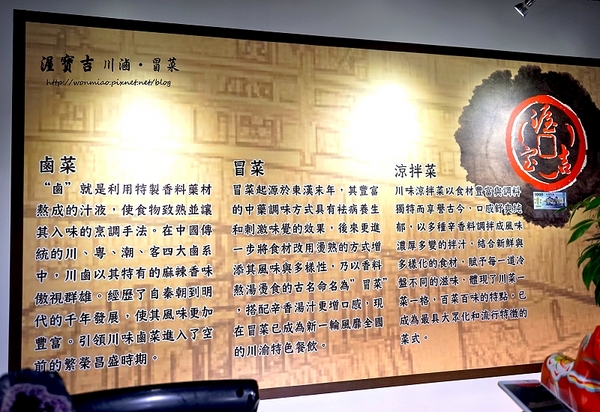 渥寶吉 川滷・冒菜
http://wonmiao.pixnet.net/blog
渥寶吉
鹵菜
“鹵”就是利用特製香料藥材
熬成的汁液，使食物致熟並讓
其入味的烹調手法。在中國傳
統的川、粵、潮、客四大鹵系
中，川鹵以其特有的麻辣香味
傲視群雄。經歷了自秦朝到明
代的千年發展，使其風味更加
豐富。引領川味鹵菜進入了空
前的繁榮昌盛時期。
冒菜
冒菜起源於東漢末年，其豐富
的中藥調味方式具有袪病養生
和刺激味覺的效果，後來更進
一步將食材改用燙熟的方式增
添其風味與多樣性，乃以香料
熬湯燙食的古名命名為”冒菜”
，搭配辛香湯汁更增口感，現
在冒菜已成為新一輪風靡全國
的川渝特色餐飲。
涼拌菜
川味涼拌菜以食材豐富與調料
獨特而享譽古今，口感鮮爽純
郁，以多種辛香料調拌成風味
濃厚多變的拌汁，結合新鮮與
多樣化的食材，賦予每一道冷
盤不同的滋味，體現了川菜一
菜一格，百菜百味的特點，已
成為最具大眾化和流行特徵的
菜式。